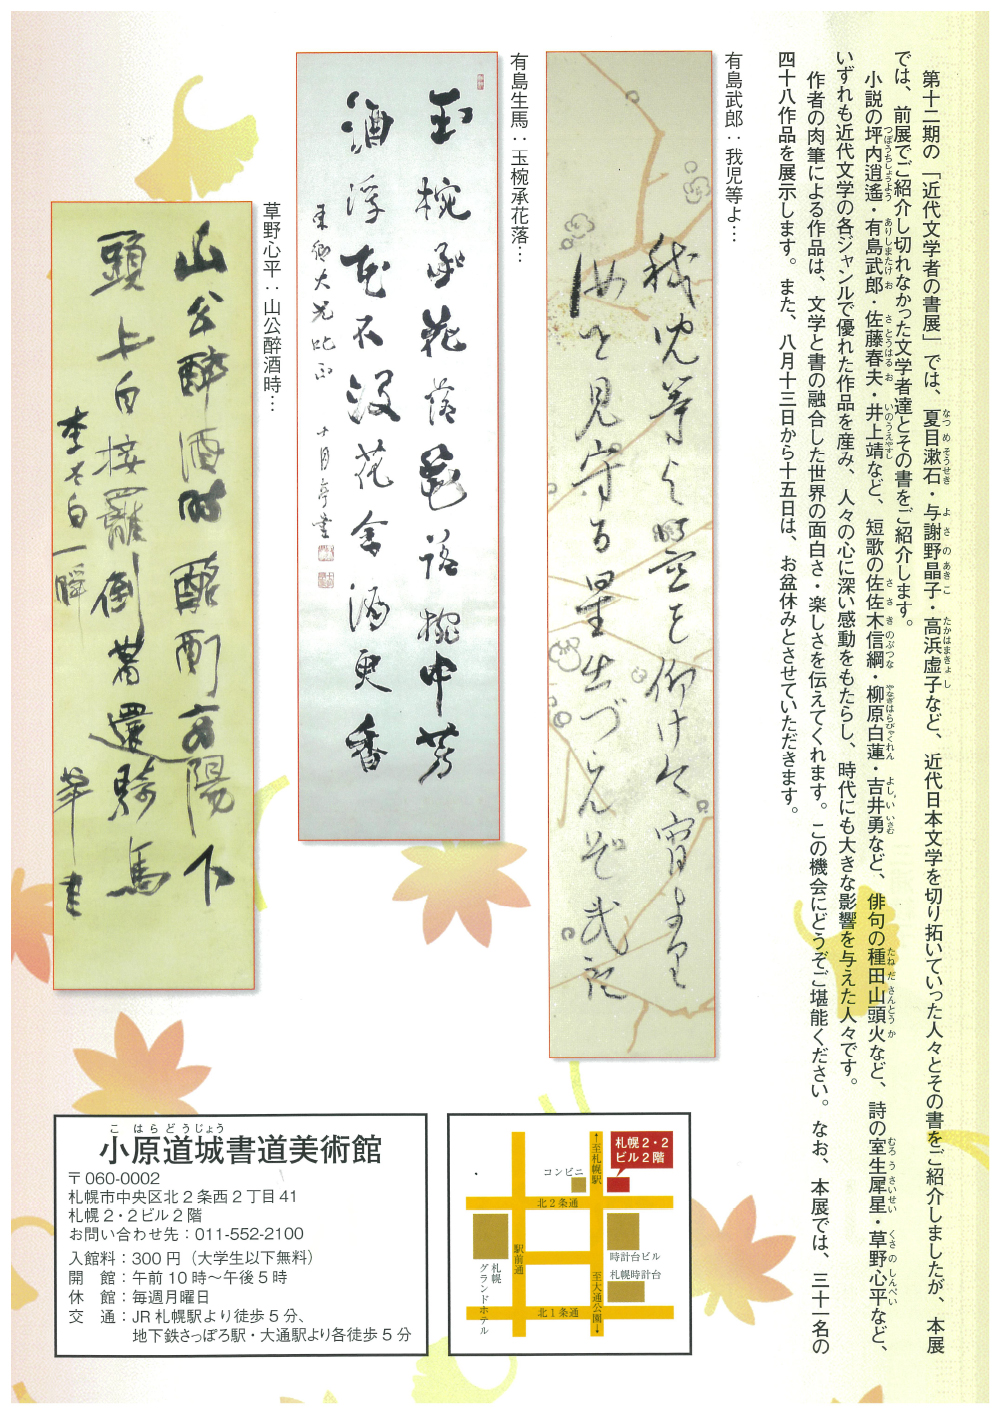 第十二期の「近代文学者の書展」では、夏目漱石・与謝野晶子・高浜虚子など、近代日本文学を切り拓いていった人々とその書をご紹介しましたが、本展
では、前展でご紹介し切れなかった文学者達とその書をご紹介します。
小説の坪内逍遙・有島武郎・佐藤春夫・井上靖など、短歌の佐佐木信綱・柳原白蓮・吉井勇など、俳句の種田山頭火など、詩の室生犀星・草野心平など、
いずれも近代文学の各ジャンルで優れた作品を産み、人々の心に深い感動をもたらし、時代にも大きな影響を与えた人々です。
作者の肉筆による作品は、文学と書の融合した世界の面白さ・楽しさを伝えてくれます。この機会にどうぞご堪能ください。なお、本展では、三十一名の
四十八作品を展示します。また、八月十三日から十五日は、お盆休みとさせていただきます。
有島武郎：我児等よ…
有島生馬：玉椀承花落…
玉椀承花落花落椀中芳
酒浮花不没花含酒更香
草野心平：山公醉酒時…
山公醉酒時酩酊高陽下
頭上白接羅倒著還騎馬
李太白一瞬
こはらどうじょう
小原道城書道美術館
〒060-0002
札幌市中央区北2条西2丁目41
札幌2・2ビル2階
お問い合わせ先：011-552-2100
入館料：300円（大学生以下無料）
開　館：午前10時～午後5時
休　館：毎週月曜日
交　通：JR札幌駅より徒歩5分、
地下鉄さっぽろ駅・大通駅より各徒歩5分
札幌2・2
ビル2階
←至札幌駅
コンビニ
北2条通
駅前通
時計台ビル
札幌時計台
札幌
グランドホテル
至大通公園→
北1条通